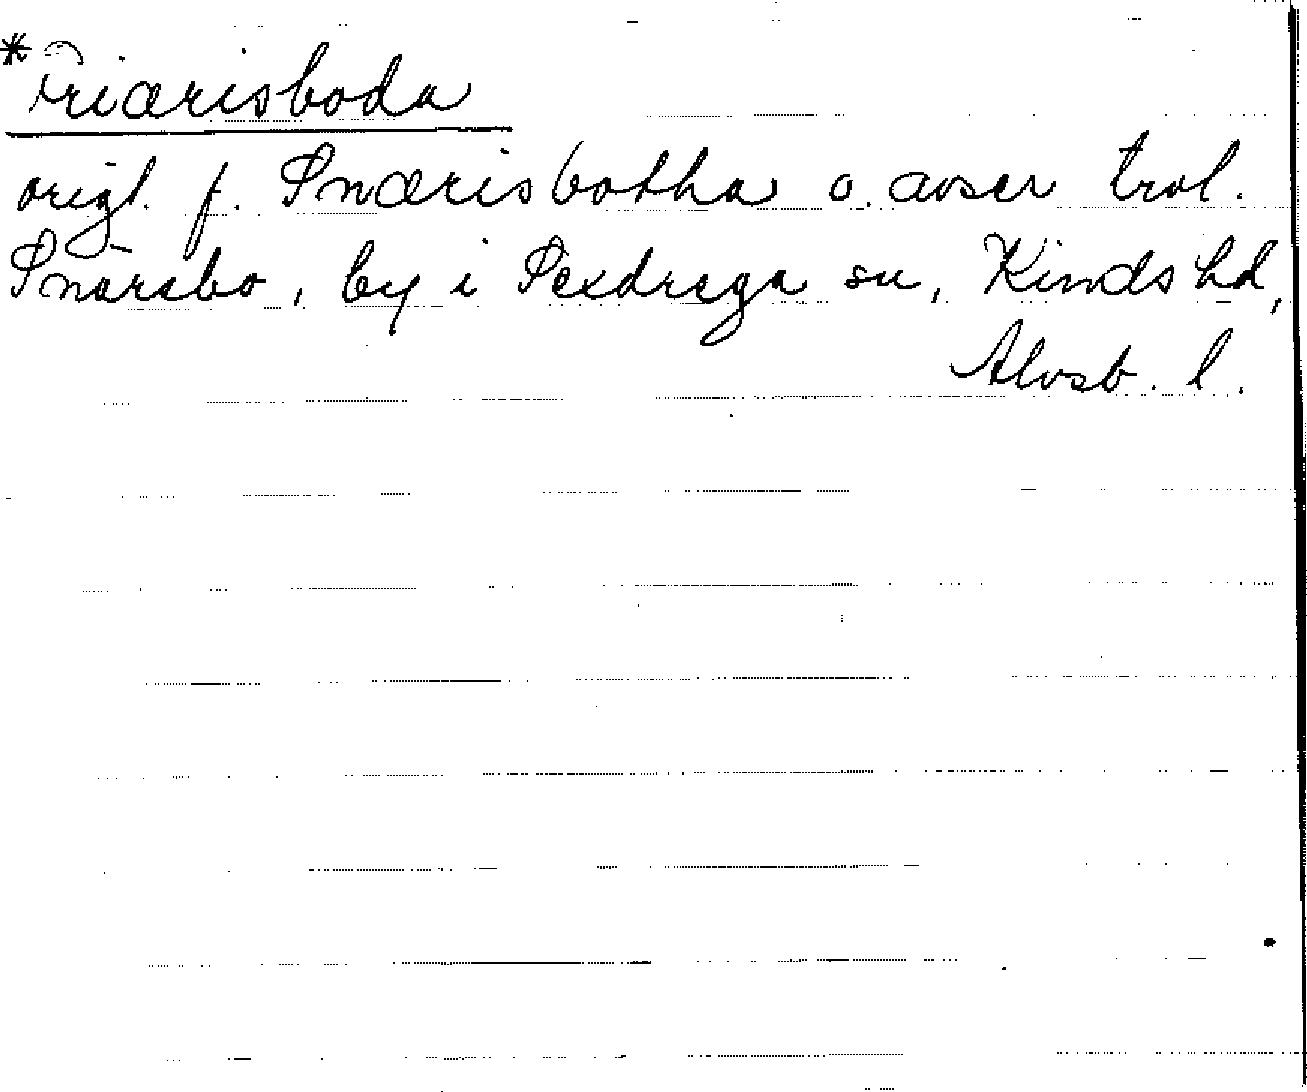 *Triærisboda
origt. f. Snærisbotha o. avser trol.
Snärsbo, by i Sexdrega sn, Kinds hd,
Älvsb. l.